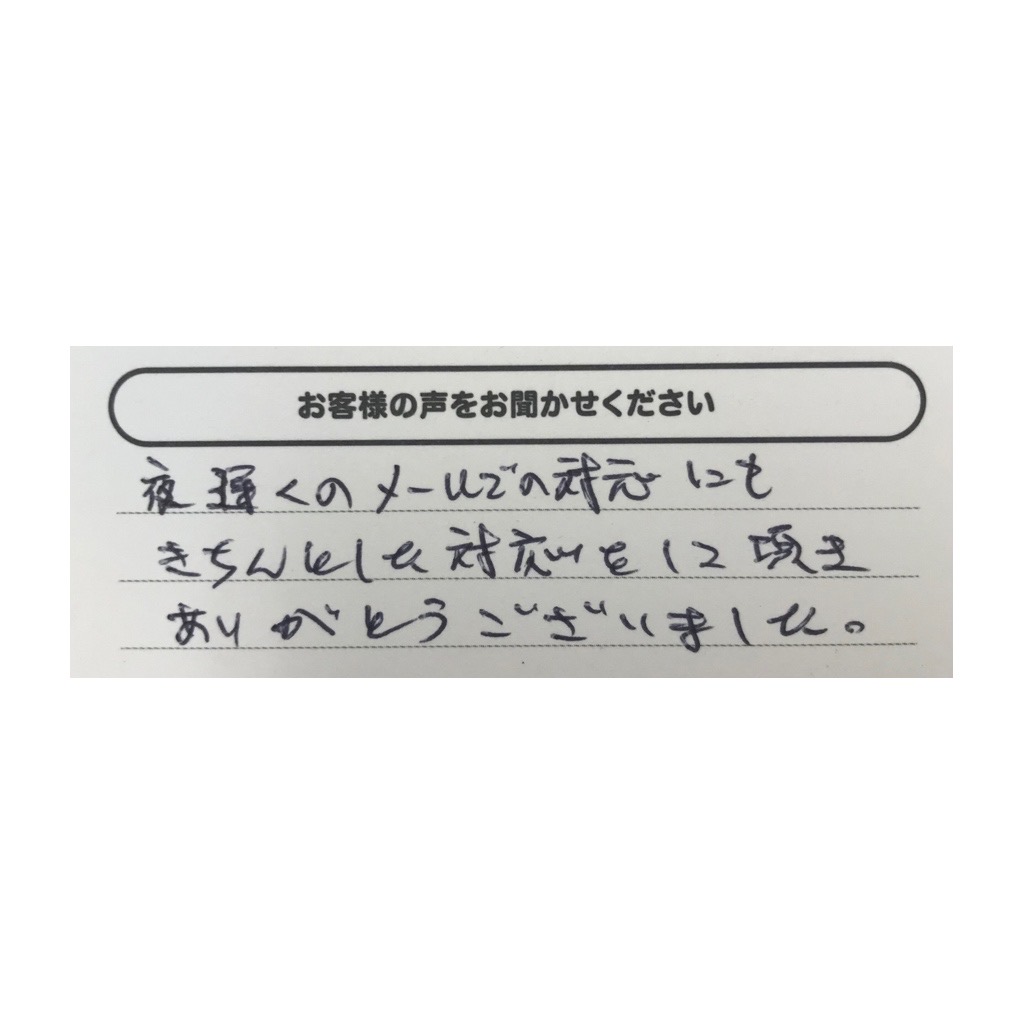 お客様の声をお聞かせください
夜遅くのメールでの対応にも
きちんとした対応をして頂き
ありがとうございました。